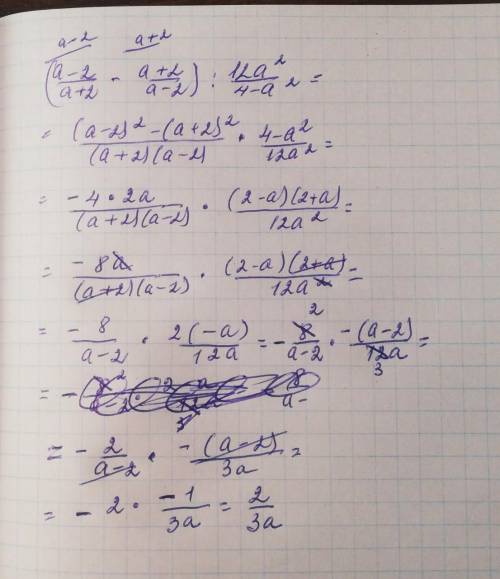 a-2 a+2
(a-2/a+2 - a+2/a-2) : 12a²/4-a² =
= (a-2)²-(a+2)²/(a+2)(a-2) · 4-a²/12a² =
= -4·2a/(a+2)(a-2) · (2-a)(2+a)/12a² =
= -8a/(a+2)(a-2) · (2-a)(2+a)/12a² =
= -8/a-2 · 2(-a)/12a = -8/a-2 · -(a-2)/12a =
2 3
= -
8/a-
= -2/a-2 · -(a-2)/3a =
= -2 · -1/3a = 2/3a